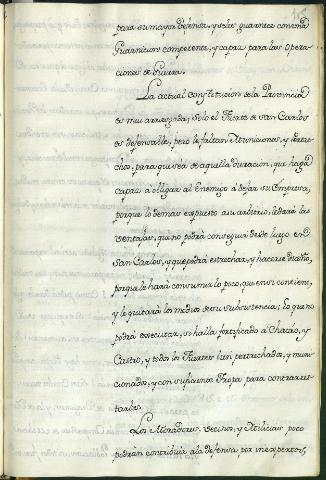 para su mayor defensa, y se les guarnece con una
Guarnicion competente, y capaz para las Opera-
ciones de Guerra.
La actual Constitucion de la Provincia
es muy arriesgada; solo el Fuerte de San Carlos
es defensable, pero le faltan Municiones, y Pertre-
chos, para que sea de aquella duracion, que haga
capaz à obligar al Enemigo à dejar su Empresa,
porque lo demas expuesto a su arbitrio, le dará las
ventajas, que no podrá conseguir desde luego en
San Carlos, y que podrá estrechar, y hacerse dueño,
porque le hará consumir lo poco, que en si contiene,
y le quitará los medios de su subsistencia; Lo que no
podrá executar, si halla fortificado à Chacao, y
Castro, y todos los Fuertes bien pertrechados, y muni-
cionados, y con suficiente Tropa para contrarres-
tarles.
Los Moradores, Vecinos, y Milicias poco
podrán contribuir a la defensa por inexpertos,